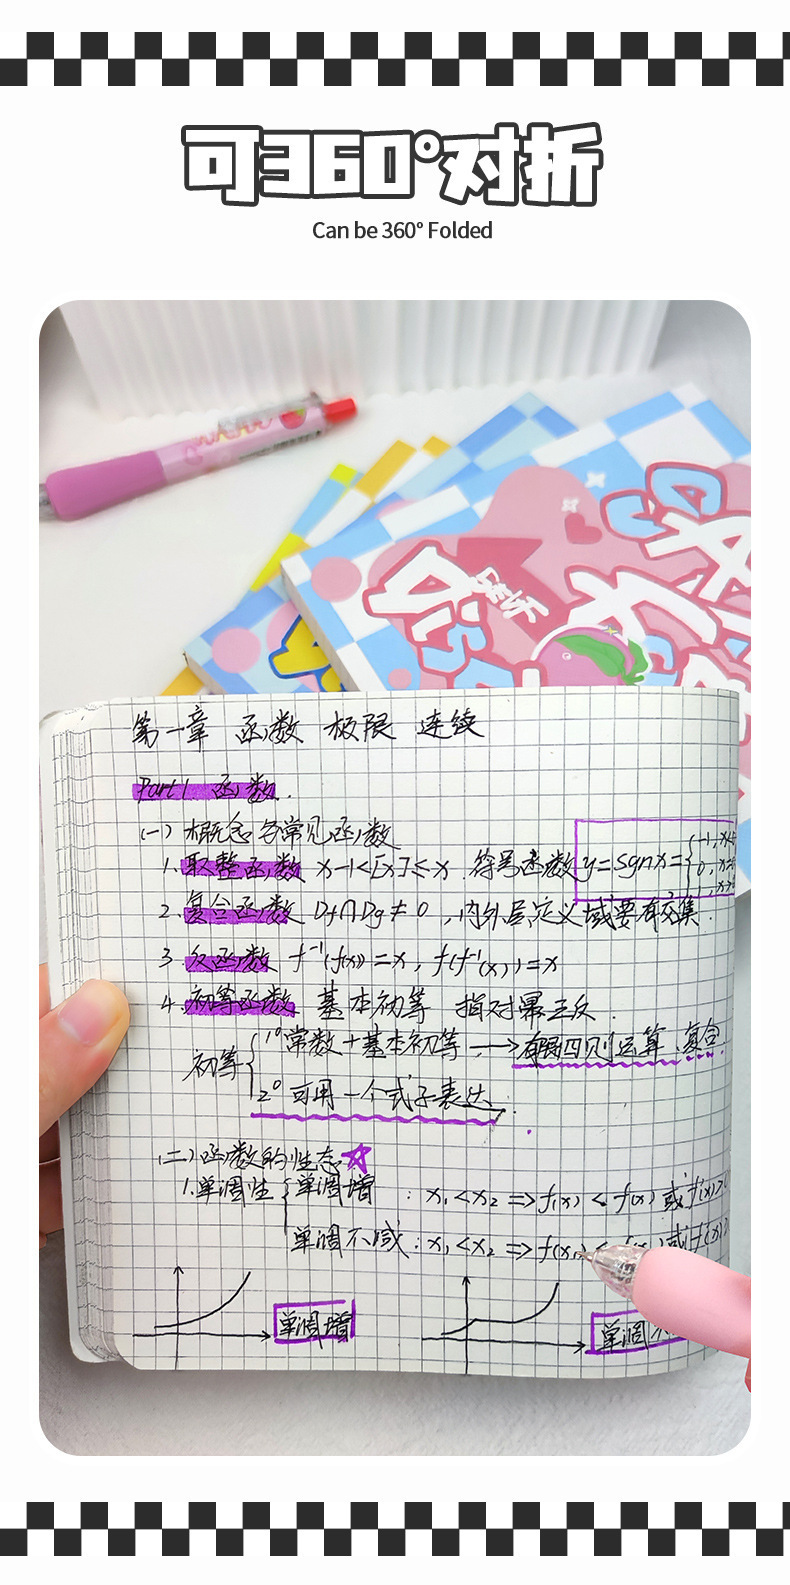 可360°对折
Can be 360° Folded
第一章 函数 极限 连续
Part1 函数.
(一) 概念 各常见函数
1. 取整函数 x-1<[x]≤x 符号函数 y=sgnx={-1, x<
0, x=
1, x>
2. 复合函数 Df∩Dg≠0, 内外层定义域要有交集.
3. 反函数 f⁻¹(f(x))=x, f(f⁻¹(x))=x
4. 初等函数 基本初等 指对幂三反.
初等{1° 常数+基本初等 → 有限四则运算、复合.
2° 可用一个式子表达.
(二) 函数的性态☆
1. 单调性{单调增 : x₁<x₂ ⇒ f(x) < f(x) 或 f'(x)>
单调不减 : x₁<x₂ ⇒ f(x₁) ≤
单调增
单调不